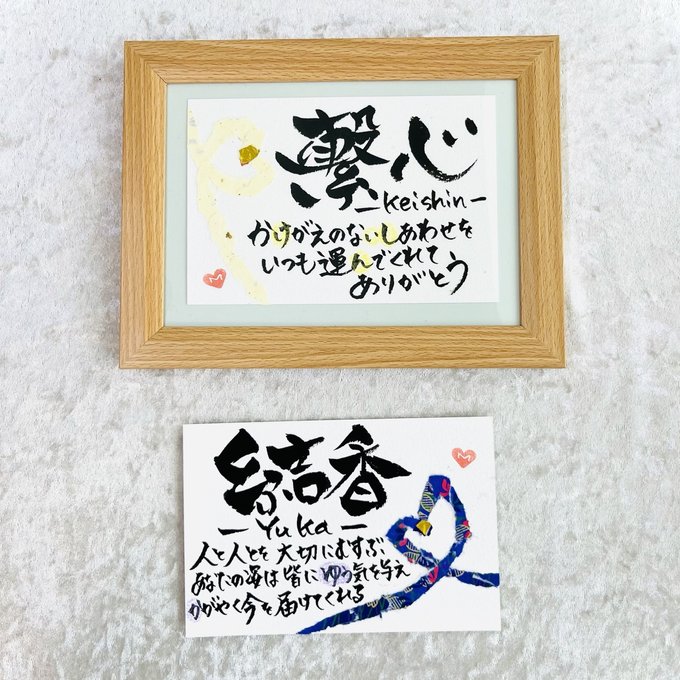 繋心
-keishin-
かけがえのないしあわせを
いつも運んでくれて
ありがとう
M
結香
-Yuka-
M
人と人とを 大切にむすぶ
あなたの姿は 皆に ゆう気を与え
かがやく今を届けてくれる